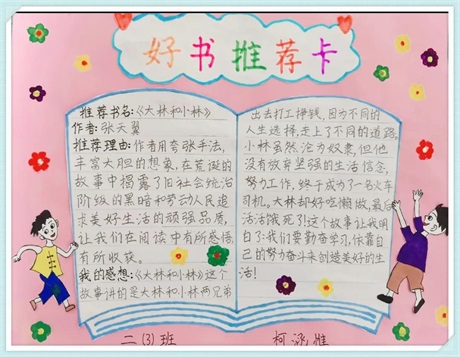 好书推荐卡
推荐书名:《大林和小林》
作者:张天翼
推荐理由:作者用夸张手法,
丰富大胆的想象,在荒诞的
故事中揭露了旧社会统治
阶级的黑暗和劳动人民追
求美好生活的顽强品质,
让我们在阅读中有所感悟,
有所收获。
我的感想:《大林和小林》这个
故事讲的是大林和小林两兄弟
出去打工挣钱,因为不同的
人生选择,走上了不同的道路。
小林虽然沦为奴隶,但他
没有放弃坚强的生活信念,
努力工作,终于成为了一名火车
司机。大林却好吃懒做,最后
活活饿死!这个故事让我明
白了:我们要勤奋学习,依靠自
己的努力奋斗来创造美好的生
活!
二(3)班
柯泳惟